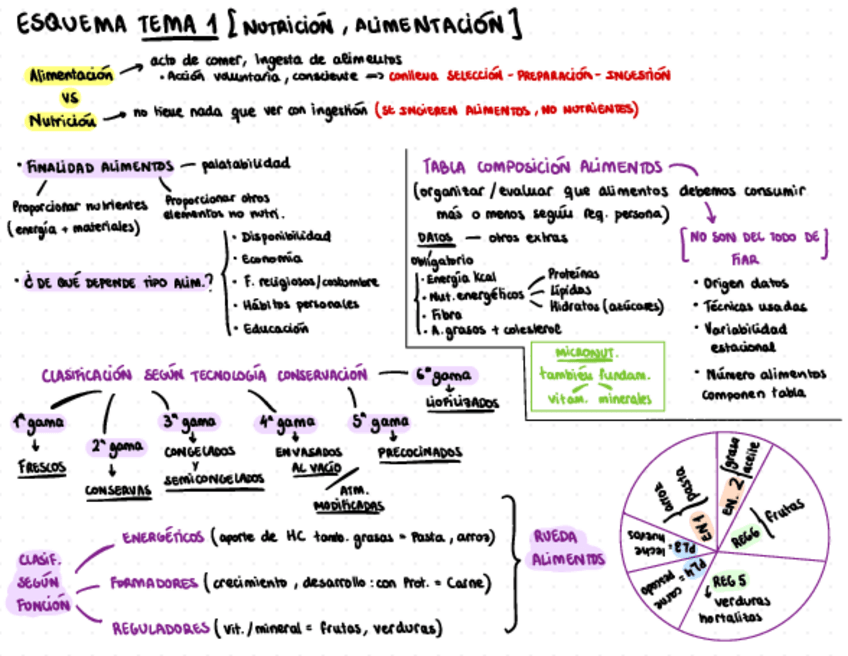 ESQUEMA TEMA 1 [NUTRICIÓN, ALIMENTACIÓN]
Alimentación → acto de comer, Ingesta de alimentos
• Acción voluntaria, consciente => conlleva SELECCIÓN - PREPARACIÓN - INGESTIÓN
VS
Nutrición → no tiene nada que ver con ingestión (SE INGIEREN ALIMENTOS, NO NUTRIENTES)
• FINALIDAD ALIMENTOS — palatabilidad
Proporcionar nutrientes
(energía + materiales)
Proporcionar otros
elementos no nutri.
• ¿DE QUÉ DEPENDE TIPO ALIM.?
• Disponibilidad
• Economía
• F. religiosos/costumbre
• Hábitos personales
• Educación
TABLA COMPOSICIÓN ALIMENTOS
(organizar/evaluar que alimentos debemos consumir
más o menos según req. persona)
DATOS — otros extras
Obligatorio
• Energía Kcal
• Nut. energéticos
• Fibra
• A. grasos + colesterol
Proteínas
Lípidos
Hidratos (azúcares)
[NO SON DEL TODO DE
FIAR]
• Origen datos
• Técnicas usadas
• Variabilidad
estacional
• Número alimentos
componen tabla
MICRONUT.
también fundam.
vitam. minerales
CLASIFICACIÓN SEGÚN TECNOLOGÍA CONSERVACIÓN — 6ª gama
LIOFILIZADOS
1ª gama
FRESCOS
2ª gama
CONSERVAS
3ª gama
CONGELADOS
Y
SEMICONGELADOS
4ª gama
ENVASADOS
AL VACÍO
ATM.
MODIFICADAS
5ª gama
PRECOCINADOS
CLASIF.
SEGÚN
FUNCIÓN
ENERGÉTICOS (aporte de HC tamb. grasas = Pasta, arroz)
FORMADORES (crecimiento, desarrollo: con Prot. = Carne)
REGULADORES (vit./mineral = frutas, verduras)
RUEDA
ALIMENTOS
EN 1
pasta
arroz
EN. 2
grasa
aceite
REG6
frutas
REG 5
verduras
hortalizas
PL4 =
carne
pescado
PL3 =
leche
huevos